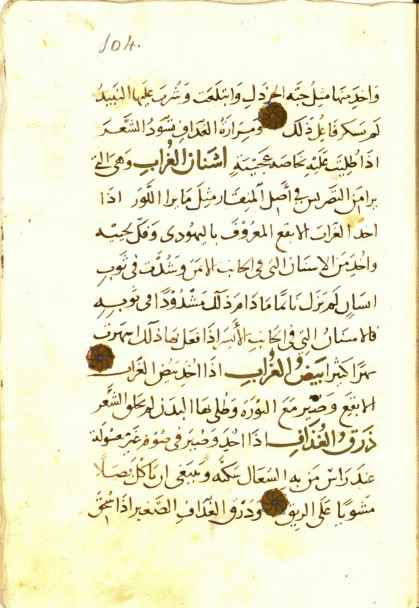 104.
واخذ منها مثل حبة الخردل وابتلعت وشرب عليها النبيذ
لم يسكر فاعل ذلك ومرارة الغداف تسود الشعر
اذا طليت عليه بخاصة عجيبة اسنان الغراب وهى التى
من فى اصل المنقار مثل ما اللوز اذا
اخذ الغراب الابقع المعروف باليهودى وفك لحييه
واخذ من الاسنان التى فى الجانب الايمن وشدت فى ثوب
انسان لم يزل نائما ما دام ذلك مشدودا فى ثوبه
فالاسنان التى فى الجانب الأيسر اذا فعل بها ذلك
بيض الغراب اذا اخذ بيض الغراب
الابقع وصير مع النورة وطلى بها البدن لم يحلق الشعر
ذرق الغداف اذا اخذ وصير فى صوفة غير مغسولة
عند راس من به السعال سكنه وينبغى ان ياكل بصلا
مشويا على الريق وذرق الغداف الصغير اذا سحق